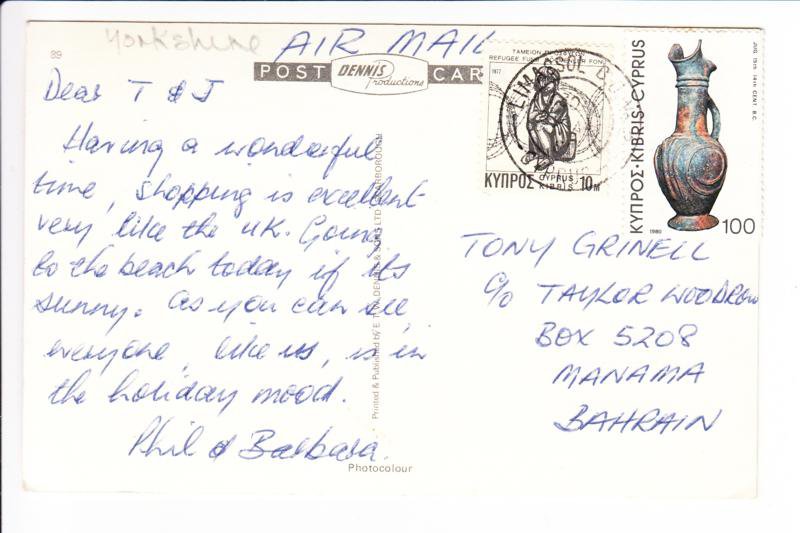 Yorkshire
AIR MAIL
89
POST DENNIS Productions CARD
Dear T & J
Having a wonderful
time, shopping is excellent
very like the UK. Going
to the beach today if its
sunny. As you can see,
everyone, like us, is in
the holiday mood.
Phil & Barbara.
Photocolour
Printed & Published by E.T.W. DENNIS & SONS LTD., SCARBOROUGH
REFUGEE FUND
1977
ΚΥΠΡΟΣ CYPRUS KIBRIS 10M
LIMASSOL
CYPRUS
ΚΥΠΡΟΣ-KIBRIS-CYPRUS
JUG, 15th-14th CENT. B.C.
1980
100
TONY GRINELL
c/o TAYLOR WOODROW
BOX 5208
MANAMA
BAHRAIN